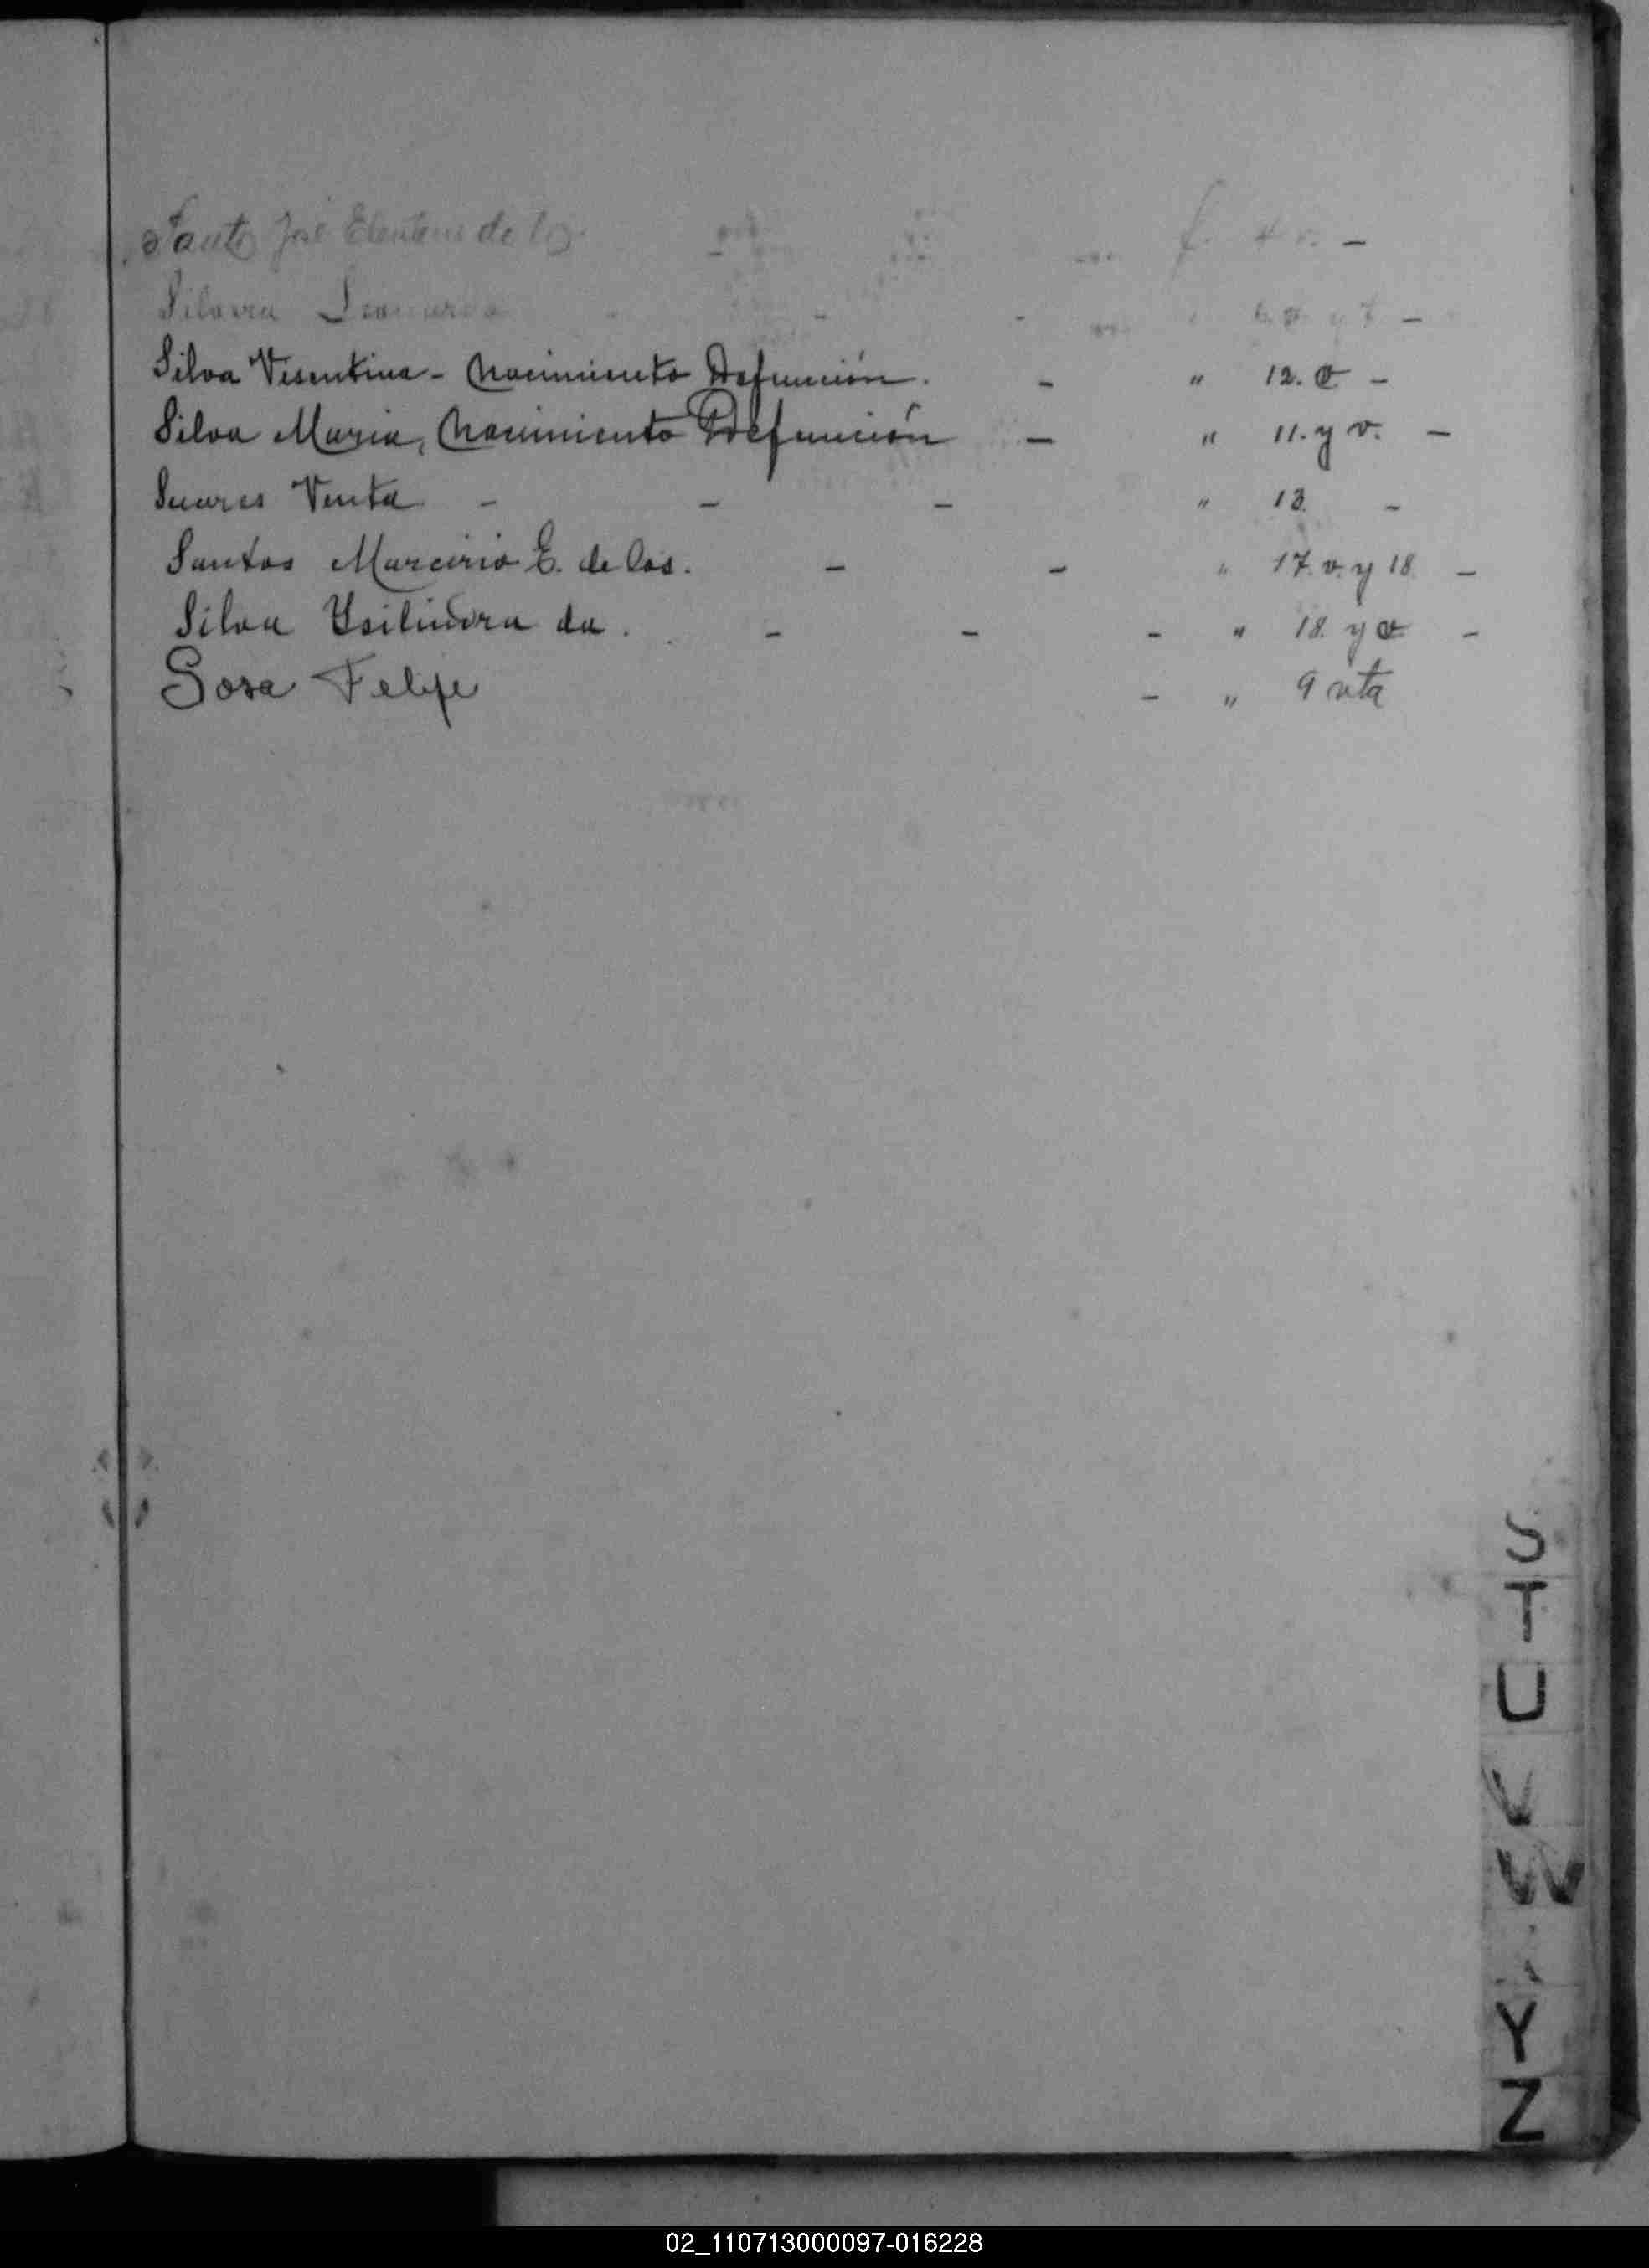 Santos José Eleuterio de los - - f. 4 v. -
Silveira - - -
Silva Visentina - Nacimiento Defunción. - " 12. v -
Silva Maria, Nacimiento Defunción - " 11. y v. -
Suares Venta - - - " 13. -
Santos Marcirio E. de los. - - " 17. v. y 18 -
Silva da. - - - " 18. y v -
Sosa Felipe - " 9 vta
S
T
U
V
W
Y
Z
02_110713000097-016228